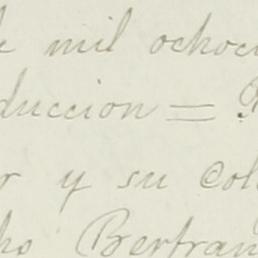 de mil ochoci
duccion =
r y su Col
ho Bertran